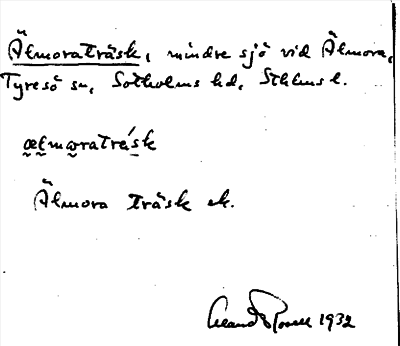 Älmoraträsk, mindre sjö vid Älmora,
Tyresö sn, Sotholms hd, Sthlms l.
ælmoratrásk
Älmora träsk ek.
1932